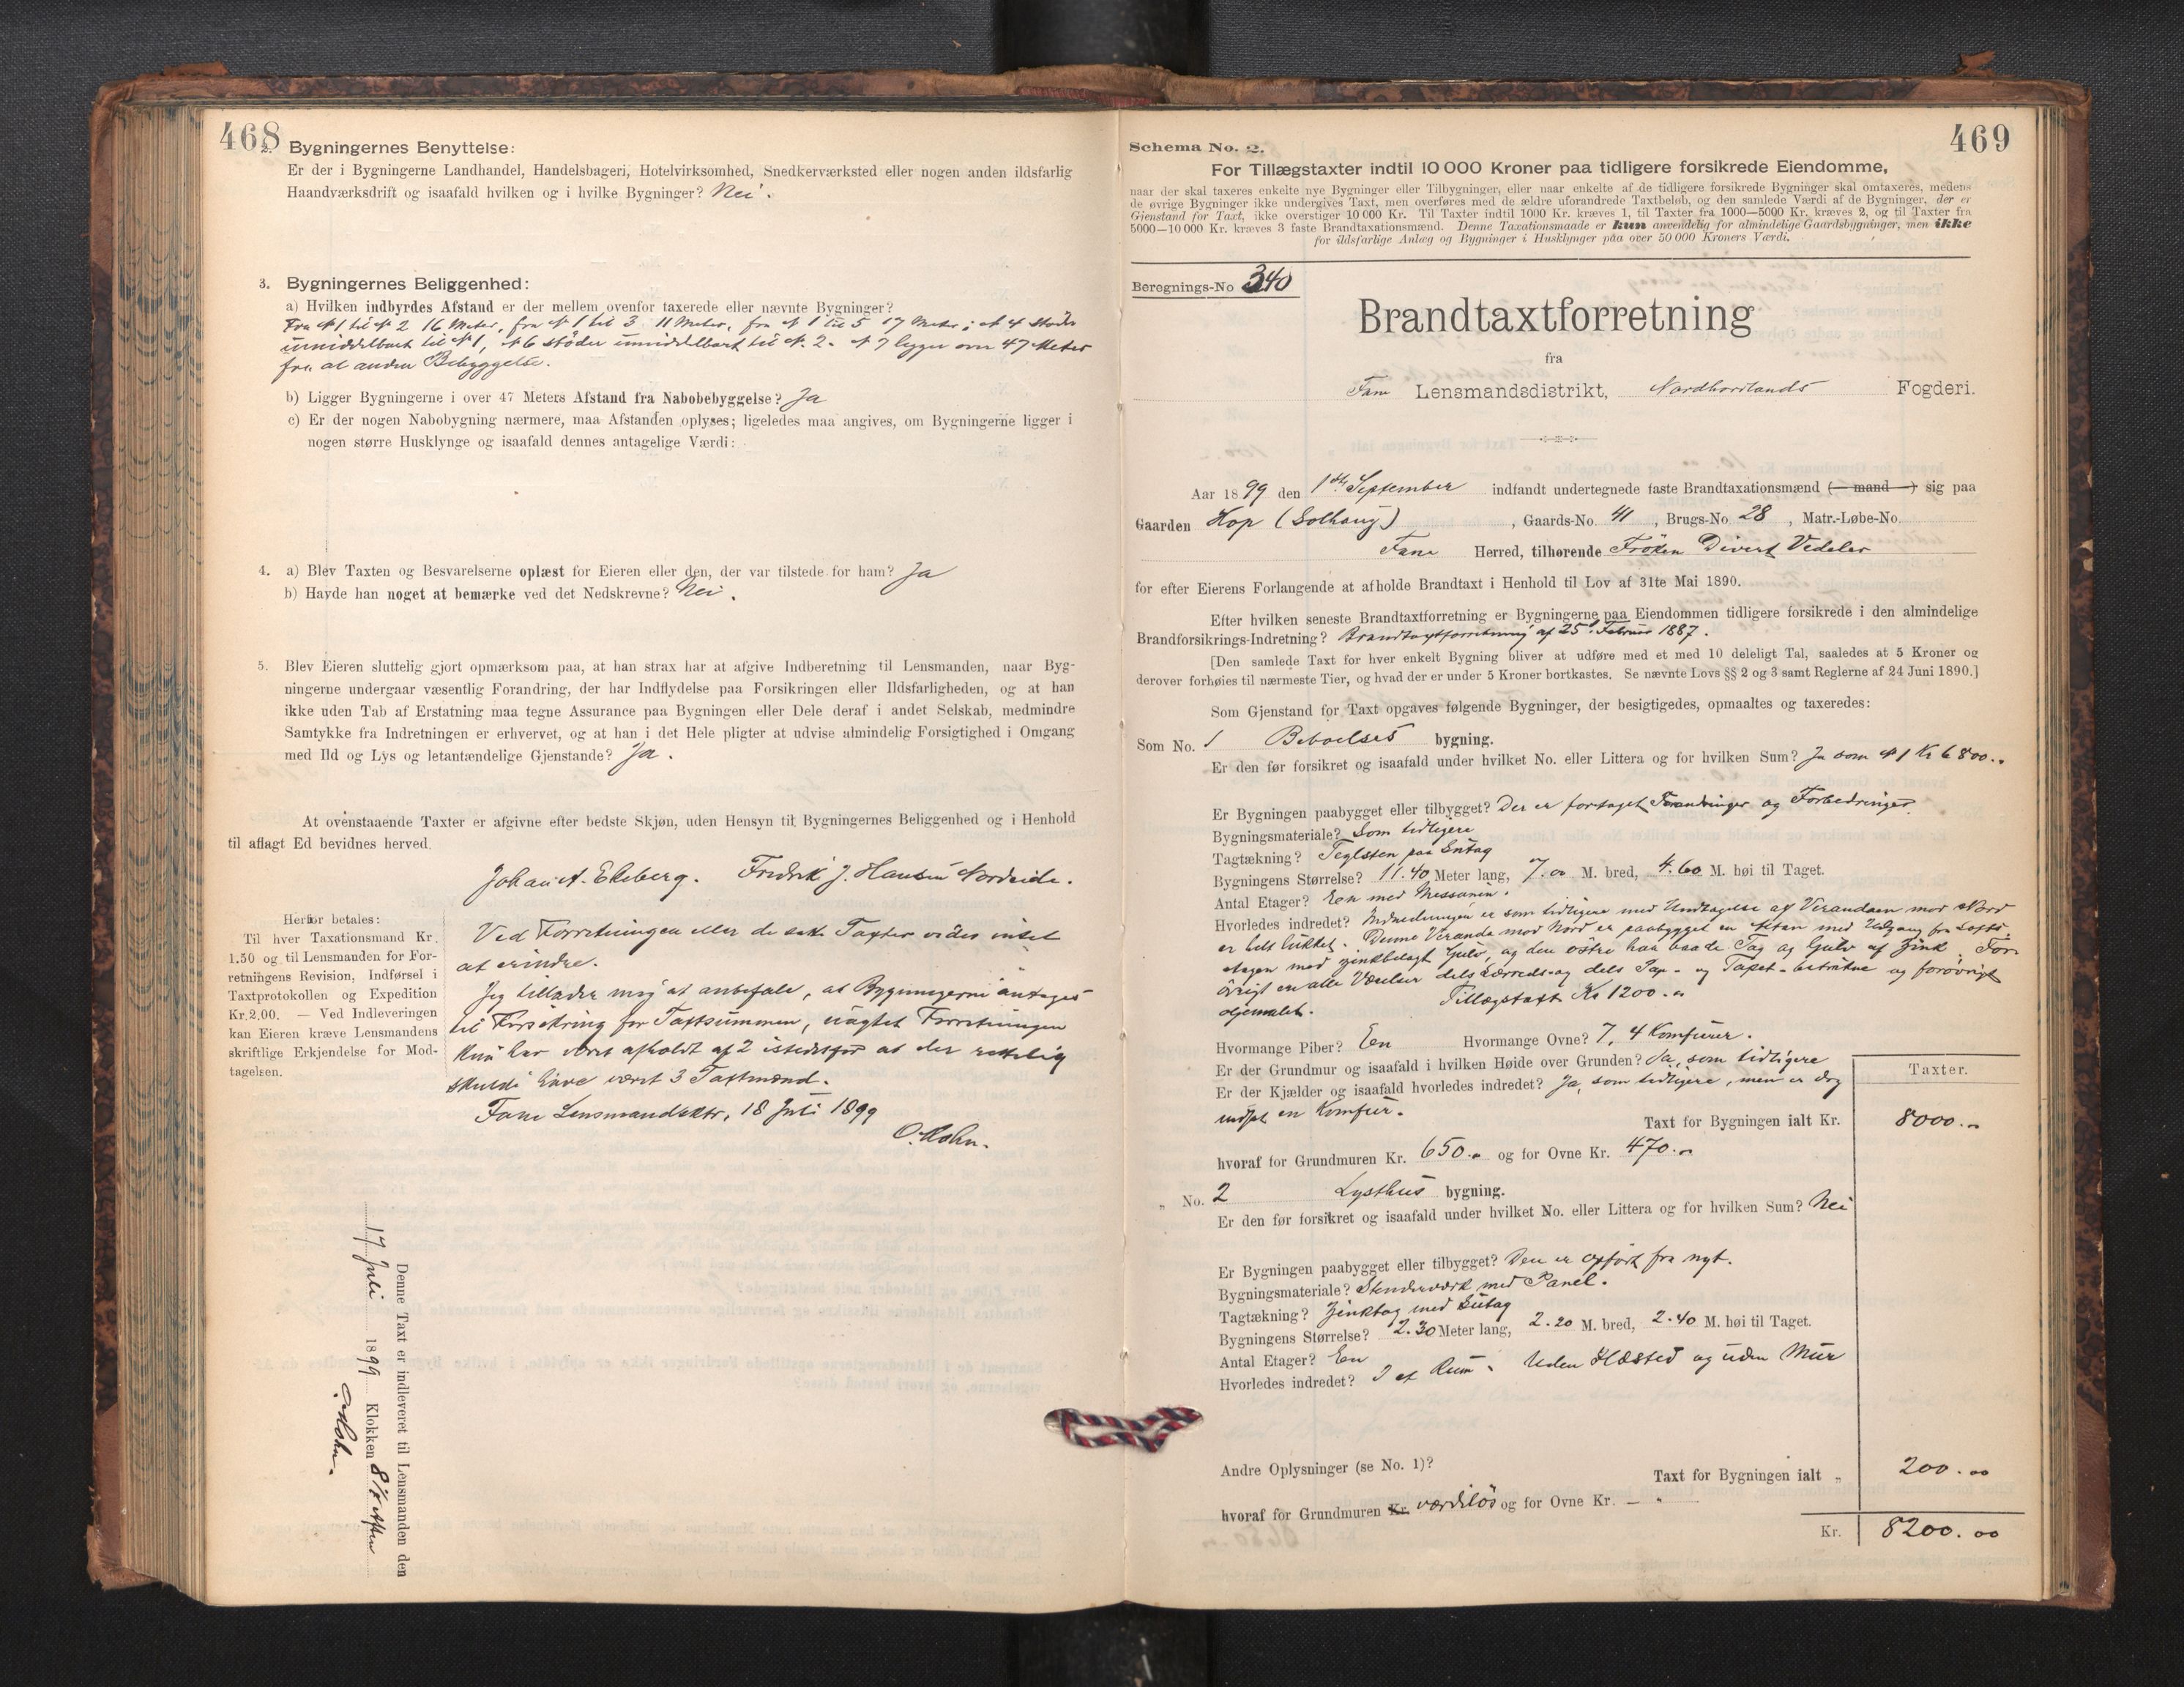 468
2. Bygningernes Benyttelse:
Er der i Bygningerne Landhandel, Handelsbageri, Hotelvirksomhed, Snedkerværksted eller nogen anden ildsfarlig
Haandværksdrift og isaafald hvilken og i hvilke Bygninger? Nei.
3. Bygningernes Beliggenhed:
a) Hvilken indbyrdes Afstand er der mellem ovenfor taxerede eller nævnte Bygninger?
Fra № 1 til № 2 16 Meter, fra № 1 til 3 11 Meter, fra № 1 til 5 17 Meter; № 4 støder
umiddelbart til № 1, № 6 støder umiddelbart til №. 2. № 7 ligger over 47 Meter
fra al anden Bebyggelse.
b) Ligger Bygningerne i over 47 Meters Afstand fra Nabobebyggelse? Ja
c) Er der nogen Nabobygning nærmere, maa Afstanden oplyses; ligeledes maa angives, om Bygningerne ligger i
nogen større Husklynge og isaafald dennes antagelige Værdi:
4. a) Blev Taxten og Besvarelserne oplæst for Eieren eller den, der var tilstede for ham? Ja
b) Havde han noget at bemærke ved det Nedskrevne? Nei.
5. Blev Eieren sluttelig gjort opmærksom paa, at han strax har at afgive Indberetning til Lensmanden, naar Byg-
ningerne undergaar væsentlig Forandring, der har Indflydelse paa Forsikringen eller Ildsfarligheden, og at han
ikke uden Tab af Erstatning maa tegne Assurance paa Bygningen eller Dele deraf i andet Selskab, medmindre
Samtykke fra Indretningen er erhvervet, og at han i det Hele pligter at udvise almindelig Forsigtighed i Omgang
med Ild og Lys og letantændelige Gjenstande? Ja.
At ovenstaaende Taxter er afgivne efter bedste Skjøn, uden Hensyn til Bygningernes Beliggenhed og i Henhold
til aflagt Ed bevidnes herved.
Johan A. Ekeberg. Fredrik J. Hansen Nordeide.
Herfor betales:
Til hver Taxationsmand Kr.
1.50 og til Lensmanden for For-
retningens Revision, Indførsel i
Taxtprotokollen og Expedition
Kr.2.00. — Ved Indleveringen
kan Eieren kræve Lensmandens
skriftlige Erkjendelse for Mod-
tagelsen.
Ved Forretningen eller de satte Taxter vides intet
at erindre.
Jeg tillader mig at anbefale, at Bygningerne antages
til Forsikring for Taxtsummen, uagtet Forretningen
kun har været afholdt af 2 istedetfor at der rettelig
skulde have været 3 Taxtmænd.
Fane Lensmandsktr, 18 Juli 1899
O. Hohn.
Denne Taxt er indleveret til Lensmanden den
17 Juli 1899 Klokken 8 1/2 Aften
O. Hohn.
469
Schema No. 2.
For Tillægstaxter indtil 10 000 Kroner paa tidligere forsikrede Eiendomme,
naar der skal taxeres enkelte nye Bygninger eller Tilbygninger, eller naar enkelte af de tidligere forsikrede Bygninger skal omtaxeres, medens
de øvrige Bygninger ikke undergives Taxt, men overføres med de ældre uforandrede Taxtbeløb, og den samlede Værdi af de Bygninger, der er
Gjenstand for Taxt, ikke overstiger 10 000 Kr. Til Taxter indtil 1000 Kr. kræves 1, til Taxter fra 1000—5000 Kr. kræves 2, og til Taxter fra
5000—10 000 Kr. kræves 3 faste Brandtaxationsmænd. Denne Taxationsmaade er kun anvendelig for almindelige Gaardsbygninger, men ikke
for ildsfarlige Anlæg og Bygninger i Husklynger paa over 50 000 Kroners Værdi.
Beregnings-No 340
Brandtaxtforretning
fra
Fane Lensmandsdistrikt, Nordhordlands Fogderi.
Aar 1899 den 1ste September indfandt undertegnede faste Brandtaxationsmænd (— mand —) sig paa
Gaarden Hop (Solhaug), Gaards-No. 41, Brugs-No. 28, Matr.-Løbe-No.
Fane Herred, tilhørende Frøken Divert Vedeler
for efter Eierens Forlangende at afholde Brandtaxt i Henhold til Lov af 31te Mai 1890.
Efter hvilken seneste Brandtaxtforretning er Bygningerne paa Eiendommen tidligere forsikrede i den almindelige
Brandforsikrings-Indretning? Brandtaxtforretning af 25. Februar 1887.
[Den samlede Taxt for hver enkelt Bygning bliver at udføre med et med 10 deleligt Tal, saaledes at 5 Kroner og
derover forhøies til nærmeste Tier, og hvad der er under 5 Kroner bortkastes. Se nævnte Lovs §§ 2 og 3 samt Reglerne af 24 Juni 1890.]
Som Gjenstand for Taxt opgaves følgende Bygninger, der besigtigedes, opmaaltes og taxeredes:
Som No. 1 Beboelses bygning.
Er den før forsikret og isaafald under hvilket No. eller Littera og for hvilken Sum? Ja som № 1 Kr 6800..
Er Bygningen paabygget eller tilbygget? Der er foretaget Forandringer og Forbedringer.
Bygningsmateriale? Som tidligere
Tagtækning? Teglsten paa Sutag
Bygningens Størrelse? 11.40 Meter lang, 7.00 M. bred, 4.60 M. høi til Taget.
Antal Etager? Een med Messanin.
Hvorledes indredet? Indredningen er som tidligere med Undtagelse af Verandaen mod Nord
er helt lukket. Denne Veranda mod Nord er paabygget en Altan med Udgang fra Lofts-
etagen med zinkbelagt Gulv, og den østre har baade Tag og Gulv af Zink. For-
øvrigt er alle Værelser dels Lærreds- og dels Pap- og Tapet-betrukne og forøvrigt
oljemalet. Tillægstaxt Kr 1200.00
Hvormange Piber? Een Hvormange Ovne? 7, 4 Komfurer.
Er der Grundmur og isaafald i hvilken Høide over Grunden? Ja, som tidligere
Er der Kjælder og isaafald hvorledes indredet? Ja, som tidligere, men er dog
indsat en Komfur.
Taxter.
Taxt for Bygningen ialt Kr. 8000.00
hvoraf for Grundmuren Kr. 650.00 og for Ovne Kr. 470.00
„ No. 2 Lysthus bygning.
Er den før forsikret og isaafald under hvilket No. eller Littera og for hvilken Sum? Nei
Er Bygningen paabygget eller tilbygget? Den er opført fra nyt.
Bygningsmateriale? Stenderværk med Panel.
Tagtækning? Zinktag med Sutag
Bygningens Størrelse? 2.30 Meter lang, 2.20 M. bred, 2.40 M. høi til Taget.
Antal Etager? Een
Hvorledes indredet? I et Rum. Uden Ildsted og uden Mur
Andre Oplysninger (se No. 1)?
Taxt for Bygningen ialt „ 200.00
hvoraf for Grundmuren Kr. værdiløs og for Ovne Kr. — „
Kr. 8200.00